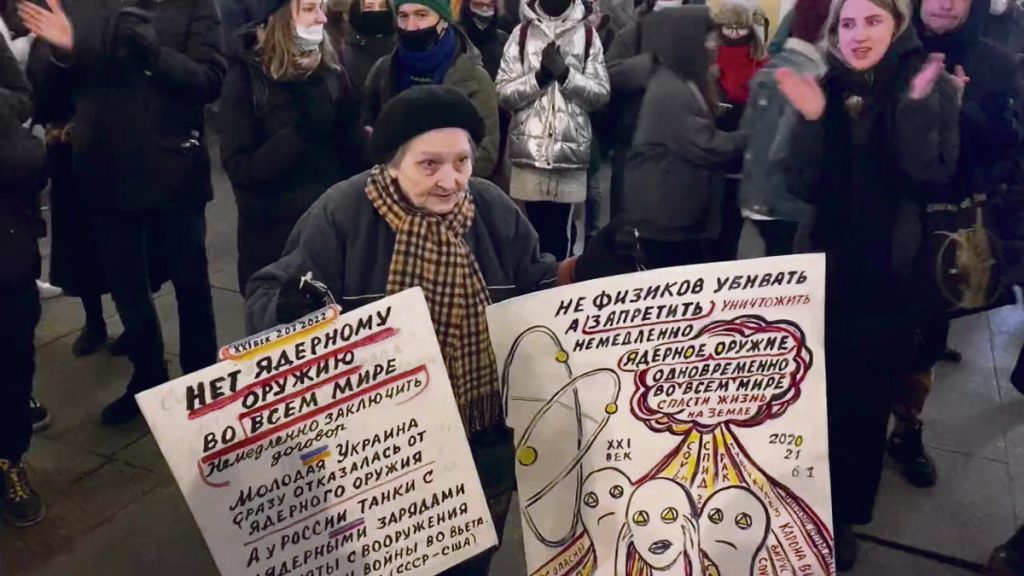 XXI ВЕК 2.03 2022
НЕТ ЯДЕРНОМУ
ОРУЖИЮ
ВО ВСЕМ МИРЕ
НЕМЕДЛЕННО ЗАКЛЮЧИТЬ
ДОГОВОР
МОЛОДАЯ УКРАИНА
СРАЗУ ОТКАЗАЛАСЬ ОТ
ЯДЕРНОГО ОРУЖИЯ
А У РОССИИ ТАНКИ С
ЯДЕРНЫМИ ЗАРЯДАМИ
С ВООРУЖЕНИЯ
ВОЙНЫ ВО ВЬЕТ.
(СССР-США)
НЕ ФИЗИКОВ УБИВАТЬ
А ЗАПРЕТИТЬ УНИЧТОЖИТЬ
НЕМЕДЛЕННО
ЯДЕРНОЕ ОРУЖИЕ
ОДНОВРЕМЕННО
ВО ВСЕМ МИРЕ
СПАСТИ ЖИЗНЬ
НА ЗЕМЛЕ
XXI
ВЕК
2020
21
6 1